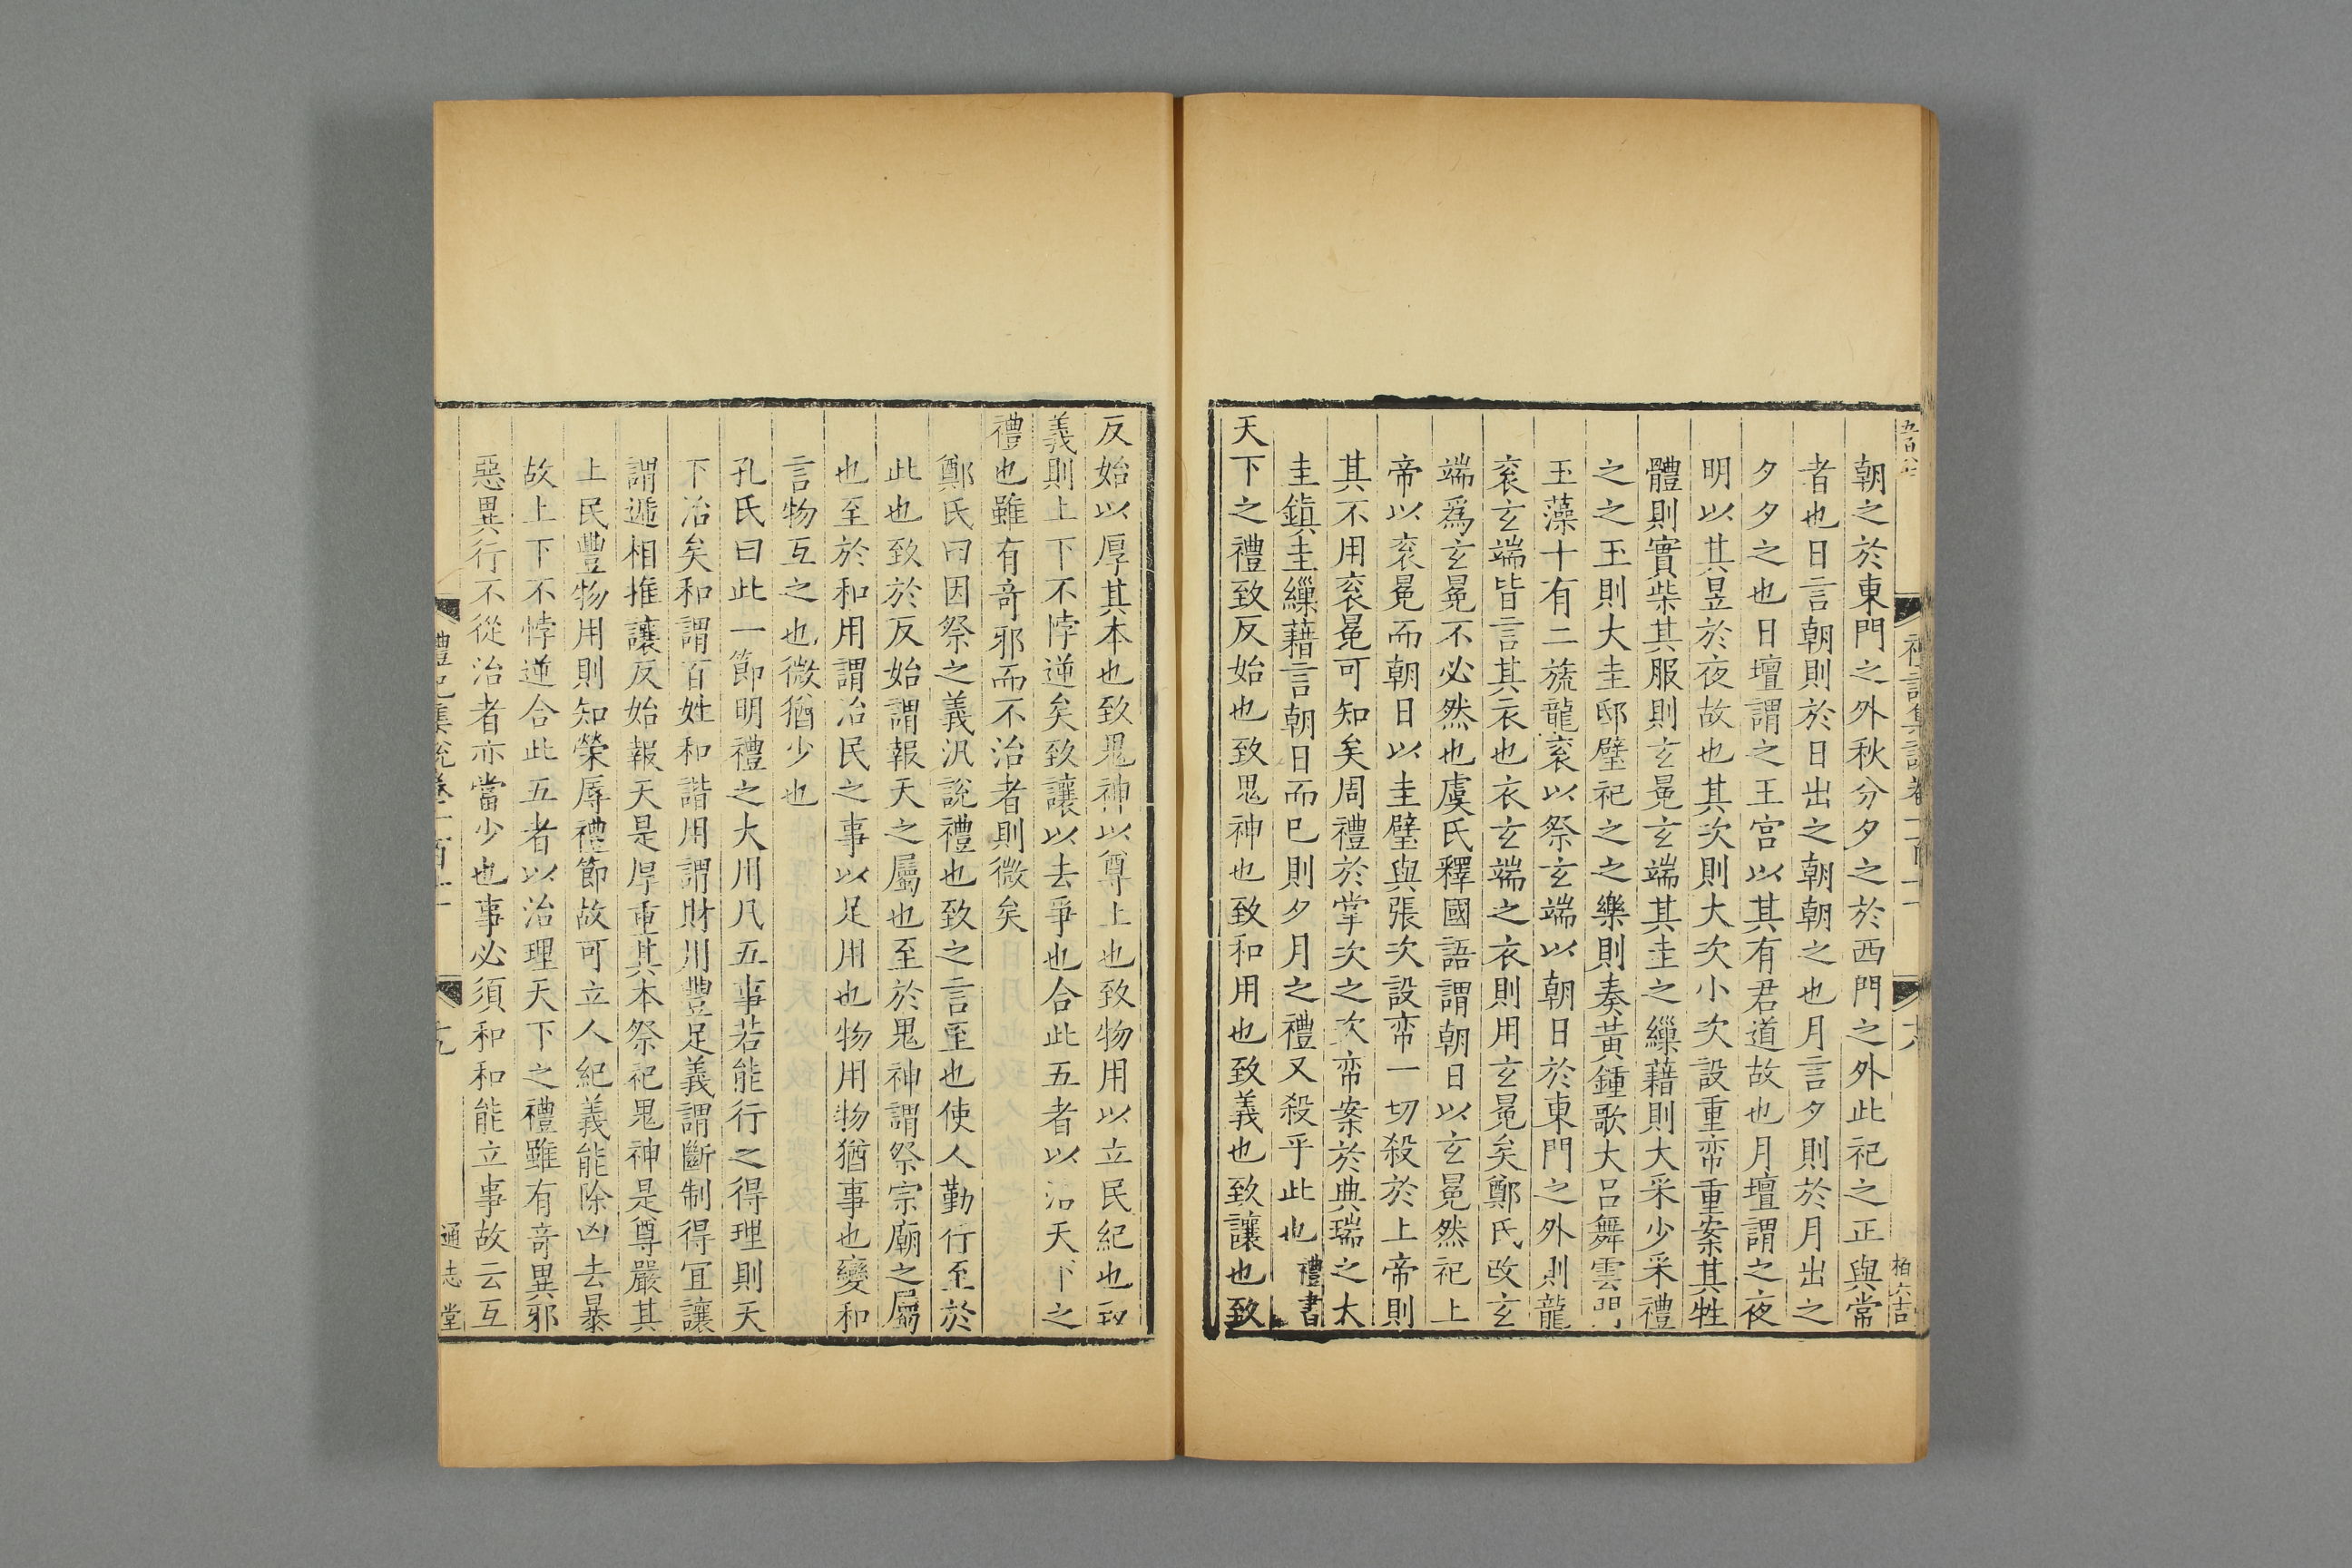 朝之於東門之外秋分夕之於西門之外此祀之正與常
者也日言朝則於日出之朝朝之也月言夕則於月出之
夕夕之也日壇謂之王宮以其有君道故也月壇謂之夜
明以其昱於夜故也其次則大次小次設重帟重案其牲
體則實柴其服則玄冕玄端其圭之繅藉則大采少采禮
之之玉則大圭邸璧祀之之樂則奏黃鍾歌大呂舞雲門
玉藻十有二旒龍衮以祭玄端以朝日於東門之外則龍
衮玄端皆言其衣也衣玄端之衣則用玄冕矣鄭氏改玄
端爲玄冕不必然也虞氏釋國語謂朝日以玄冕然祀上
帝以衮冕而朝日以圭璧與張次設帟一切殺於上帝則
其不用衮冕可知矣周禮於掌次之次帟案於典瑞之大
圭鎮圭繅藉言朝日而巳則夕月之禮又殺乎此也禮書
天下之禮致反始也致鬼神也致和用也致義也致讓也致
反始以厚其本也致鬼神以尊上也致物用以立民紀也致
義則上下不悖逆矣致讓以去爭也合此五者以治天下之
禮也雖有奇邪而不治者則微矣
鄭氏曰因祭之義汎說禮也致之言至也使人勤行至於
此也致於反始謂報天之屬也至於鬼神謂祭宗廟之屬
也至於和用謂治民之事以足用也物用物猶事也變和
言物互之也微猶少也
孔氏曰此一節明禮之大用凡五事若能行之得理則天
下治矣和謂百姓和諧用謂財用豐足義謂斷制得宜讓
謂遞相推讓反始報天是厚重其本祭祀鬼神是尊嚴其
上民豐物用則知榮辱禮節故可立人紀義能除凶去暴
故上下不悖逆合此五者以治理天下之禮雖有奇異邪
惡異行不從治者亦當少也事必須和和能立事故云互
禮記集說卷一百十一 十九 通志堂